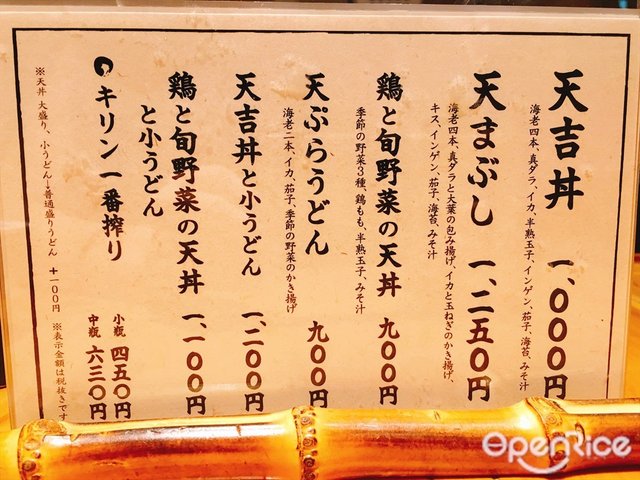 天吉丼 一、〇〇〇円
海老四本、真ダラ、イカ、半熟玉子、インゲン、茄子、海苔、みそ汁
天まぶし 一、二五〇円
海老四本、真ダラと大葉の包み揚げ、イカと玉ねぎのかき揚げ、
キス、インゲン、茄子、海苔、みそ汁
鶏と旬野菜の天丼 九〇〇円
季節の野菜3種、鶏もも、半熟玉子、みそ汁
天ぷらうどん 九〇〇円
海老二本、イカ、茄子、季節の野菜のかき揚げ
天吉丼と小うどん 一、二〇〇円
鶏と旬野菜の天丼
と小うどん 一、一〇〇円
キリン一番搾り
小瓶 四五〇円
中瓶 六三〇円
※天丼 大盛り、小うどん→普通盛りうどん +一〇〇円 ※表示金額は税抜きです
OpenRice